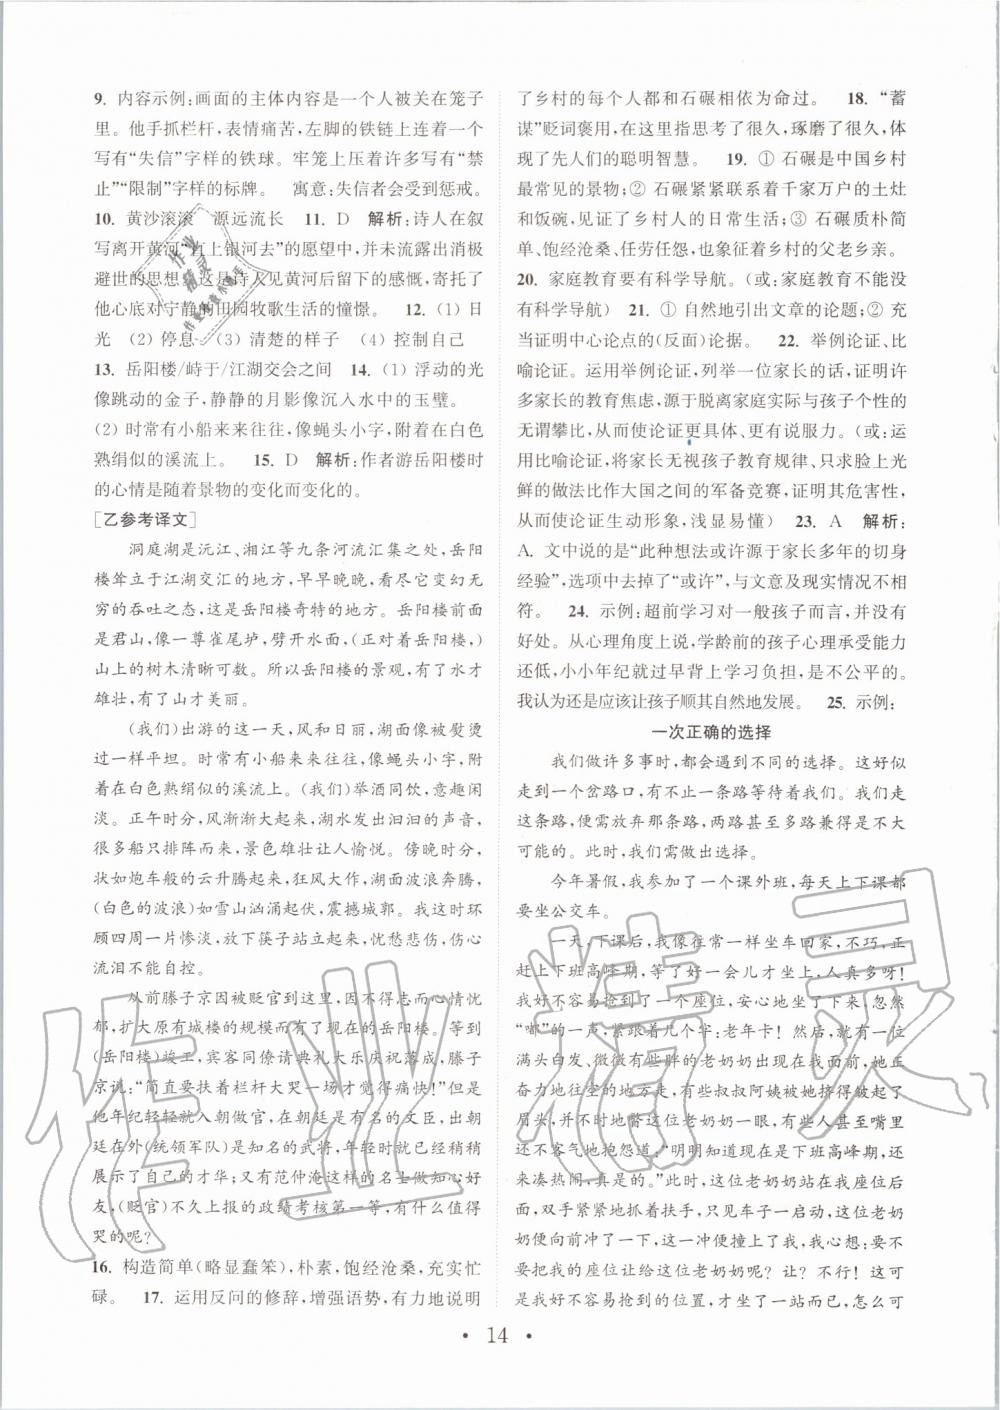 9. 内容示例:画面的主体内容是一个人被关在笼子
里。他手抓栏杆,表情痛苦,左脚的铁链上拴着一个
写有“失信”字样的铁球。牢笼上挂着许多写有“禁
止”“限制”字样的标牌。 寓意:失信者会受到惩戒。
10. 黄沙滚滚 源远流长 11. D 解析:诗人在叙
写离开黄河“直上银河去”的愿望中,并未流露出消极
避世的思想,这是诗人见黄河后留下的感慨,寄托了
他心底对宁静的田园牧歌生活的憧憬。 12. (1) 日
光 (2) 停息 (3) 清楚的样子 (4) 控制自己
13. 岳阳楼/峙于/江湖交会之间 14. (1) 浮动的光
像跳动的金子,静静的月影像沉入水中的玉璧。
(2) 时常有小船来来往往,像蝇头小字,附着在白色
熟绢似的溪流上。 15. D 解析:作者游岳阳楼时
的心情是随着景物的变化而变化的。
[乙参考译文]
洞庭湖是沅江、湘江等九条河流汇集之处,岳阳
楼耸立于江湖交汇的地方,早早晚晚,看尽它变幻无
穷的吞吐之态,这是岳阳楼奇特的地方。岳阳楼前面
是君山,像一尊雀尾垆,劈开水面,(正对着岳阳楼,)
山上的树木清晰可数。所以岳阳楼的景观,有了水才
雄壮,有了山才美丽。
(我们)出游的这一天,风和日丽,湖面像被熨烫
过一样平坦。时常有小船来来往往,像蝇头小字,附
着在白色熟绢似的溪流上。(我们)举酒同饮,意趣闲
淡。正午时分,风渐渐大起来,湖水发出汩汩的声音,
很多船只排阵而来,景色雄壮让人愉悦。傍晚时分,
状如炮车般的云升腾起来,狂风大作,湖面波浪翻腾,
(白色的波浪)如雪山汹涌奔来,震撼城郭。我这时环
顾四周一片惨淡,放下筷子站立起来,忧愁悲伤,伤心
流泪不能自控。
从前滕子京因被贬官到这里,因不得志而心情忧
郁,扩大原有城楼的规模而有了现在的岳阳楼。等到
(岳阳楼)竣工,宾客同僚请典礼大乐庆祝落成,滕子
京说:“简直要扶着栏杆大哭一场才觉得痛快!”但是
他年纪轻轻就入朝做官,在朝廷上是有名的文臣,出朝
廷在外(统领军队)是知名的武将,年轻时就已经稍稍
展示了自己的才华;又有范仲淹这样的名士做知心好
友,(贬官)不久上报的政绩考核第一等,有什么值得
哭的呢?
16. 构造简单(略显蠢笨),朴素,饱经沧桑,充实忙
碌。 17. 运用反问的修辞,增强语势,有力地说明
了乡村的每个人都和石碾相依为命过。 18. “蓄
谋”贬词褒用,在这里指思考了很久,琢磨了很久,体
现了先人们的聪明智慧。 19. ① 石碾是中国乡村
最常见的景物;② 石碾紧紧联系着千家万户的土灶
和饭碗,见证了乡村人的日常生活;③ 石碾质朴简
单、饱经沧桑、任劳任怨,象征着乡村的父老乡亲。
20. 家庭教育要有科学导航。(或:家庭教育不能没
有科学导航) 21. ① 自然地引出文章的论题;② 充
当证明中心论点的(反面)论据。 22. 举例论证、比
喻论证。运用举例论证,列举一位家长的话,证明许
多家长的教育焦虑,源于脱离家庭实际与孩子个性的
无谓攀比,从而使论证更具体、更有说服力。(或:运
用比喻论证,将家长无视孩子教育规律、只求脸上光
鲜的做法比作大国之间的军备竞赛,证明其危害性,
从而使论证生动形象,浅显易懂) 23. A 解析:
A. 文中说的是“此种想法或许源于家长多年的切身
经验”,选项中去掉了“或许”,与文意及现实情况不相
符。 24. 示例:超前学习对一般孩子而言,并没有
好处。从心理角度上说,学龄前的孩子心理承受能力
还低,小小年纪就过早背上学习负担,是不公平的。
我认为还是应该让孩子顺其自然地发展。 25. 示例:
一次正确的选择
我们做许多事时,都会遇到不同的选择。这好似
走到一个岔路口,有一条条路等待着我们。我们走
这条路,便需放弃那条路,两路甚至多路兼得是不大
可能的。此时,我们需做出选择。
今年暑假,我参加了一个课外班,每天上下课都
要坐公交车。
一天,下课后,我像往常一样坐车回家,不巧,正
赶上下班高峰期,等了好一会儿才坐上,人真多呀!
我好不容易抢到了一个座位,安心地坐了下来,忽然
“嘟”的一声,紧跟着几个字:老年卡!然后,有一位
满头白发、微微有些胖的老奶奶出现在我面前,她正
奋力地往空的地方走,有些叔叔阿姨被她挤得皱起了
眉头,并不时地瞥这位老奶奶一眼,有些人甚至嘴里
还不客气地抱怨道:“明明知道现在是下班高峰期,还
来凑热闹,真是的。”此时,这位老奶奶站在我座位后
面,双手紧紧地抓着扶手,只见车子一启动,这位老奶
奶便向前冲了一下,这一冲便撞上了我,我心想:要不
要把我的座位让给这位老奶奶呢?让?不行!这可
是我好不容易抢到的位置,才坐了一站而已,怎么可
• 14 •
作业精灵